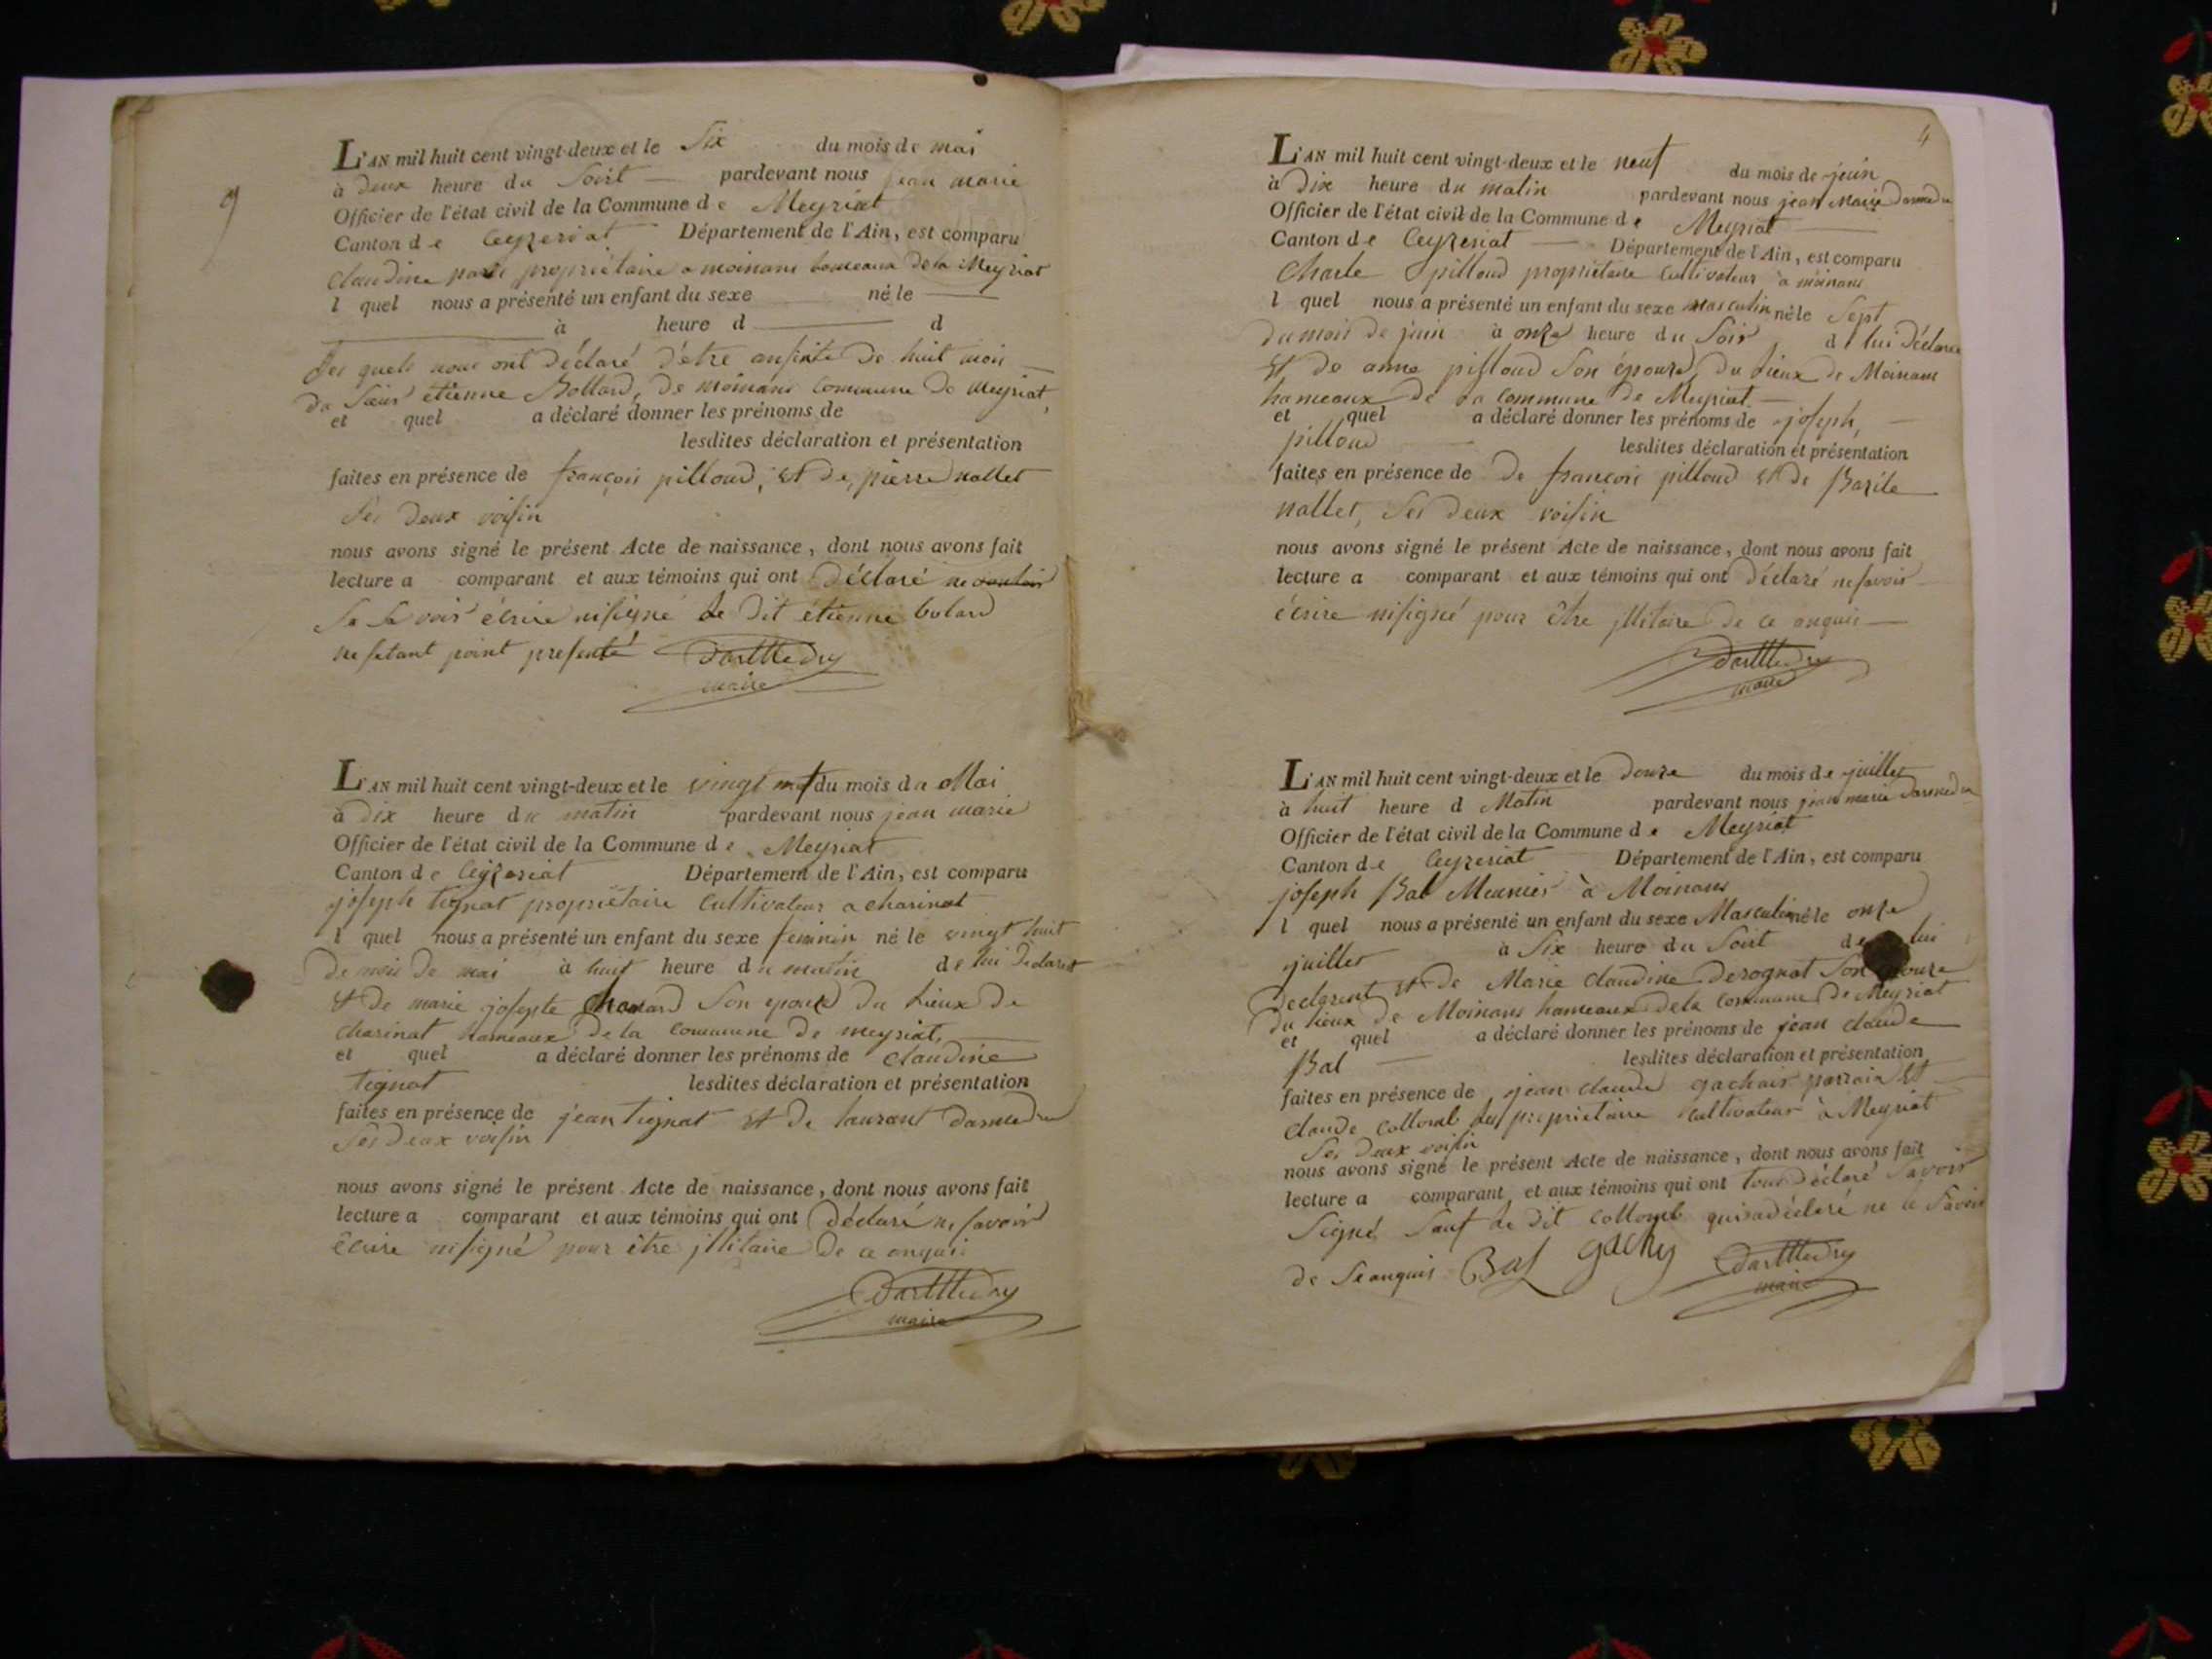 L'AN mil huit cent vingt-deux et le Six du mois de mai
à deux heure du Soirt pardevant nous jean marie
Officier de l'état civil de la Commune de Meyriat
Canton de Ceyzeriat Département de l'Ain, est comparu
claudine propriétaire a moinans hameaux de la Meyriat
l quel nous a présenté un enfant du sexe né le
à heure d d
Les quels nous ont déclaré d'etre anfinte de huit mois
du Sieur étienne Bollard, de moinans commune de Meyriat,
et quel a déclaré donner les prénoms de
lesdites déclaration et présentation
faites en présence de françois pilloud, et de, pierre nallet
Ses deux voisin
nous avons signé le présent Acte de naissance, dont nous avons fait
lecture a comparant et aux témoins qui ont déclaré ne
Sa Savoir écrire nisigné Le dit étienne bolard
ne setant point presenté Darmedry
maire
L'AN mil huit cent vingt-deux et le vingt du mois de Mai
à Dix heure du matin pardevant nous jean marie
Officier de l'état civil de la Commune de Meyriat
Canton de Ceyzeriat Département de l'Ain, est comparu
joseph tignat propriétaire Cultivateur a charinat
l quel nous a présenté un enfant du sexe feminin né le vingt huit
de mois de mai à huit heure du matin de lui Declarent
et de marie josepte Son epouse du Lieux de
charinat hameaux de la commune de meyriat,
et quel a déclaré donner les prénoms de claudine
tignat lesdites déclaration et présentation
faites en présence de jean tignat et de laurant darmedru
Ses deux voisin
nous avons signé le présent Acte de naissance, dont nous avons fait
lecture a comparant et aux témoins qui ont déclaré ne savoir
écrire nisigné pour être jllitaire de ce anquis
Darmedry
maire
4
L'AN mil huit cent vingt-deux et le neuf du mois de juin
à Dix heure du matin pardevant nous jean Marie Darmedru
Officier de l'état civil de la Commune de Meyriat
Canton de Ceyzeriat Département de l'Ain, est comparu
Charle pilloud propriétaire Cultivateur à moinans
l quel nous a présenté un enfant du sexe masculin né le Sept
du mois de juin à onze heure du Soir d lui Déclarent
et de anne pilloud Son épouse, du Lieux de Moinans
hameaux de la commune de Meyriat
et quel a déclaré donner les prénoms de joseph,
pilloud lesdites déclaration et présentation
faites en présence de de françois pilloud et de Bazile
nallet, Ses deux voisin
nous avons signé le présent Acte de naissance, dont nous avons fait
lecture a comparant et aux témoins qui ont déclaré ne savoir
écrire nisigné pour être jllitaire de ce anquis
Darmedry
maire
L'AN mil huit cent vingt-deux et le douze du mois de juillet
à huit heure d Matin pardevant nous jean marie Darmedru
Officier de l'état civil de la Commune de Meyriat
Canton de Ceyzeriat Département de l'Ain, est comparu
joseph Bal Meunier à Moinans
l quel nous a présenté un enfant du sexe Masculin né le onze
juillet à Six heure du Soirt de lui
Declarent et de Marie claudine derognat Son epouze
du Lieux de Moinans hameaux de la commune de Meyriat
et quel a déclaré donner les prénoms de jean claude
Bal lesdites déclaration et présentation
faites en présence de jean claude gachair parrain et
claude Collomb propriétaire cultivateur à Meyriat
Ses deux voisin
nous avons signé le présent Acte de naissance, dont nous avons fait
lecture a comparant et aux témoins qui ont tous déclaré Savoir
Signé, Sauf Le dit collomb qui a déclaré ne le Savoir
de Seanquis Bal gachy Darmedry
maire